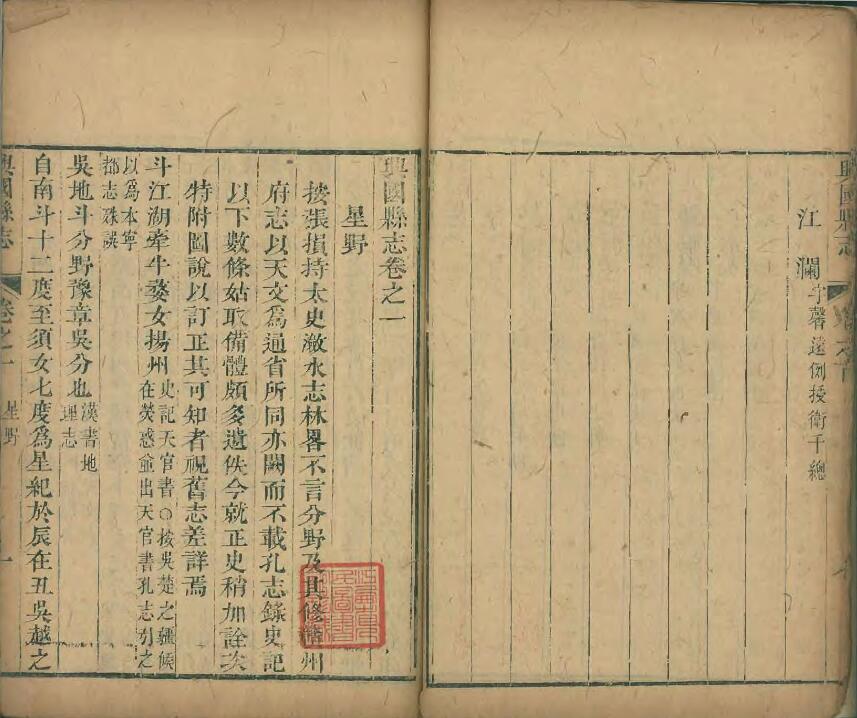 興國縣志
江瀾 字馨遠例授衛千總
興國縣志卷之一
星野
按張損持太史瀲水志林畧不言分野及其修贛州
府志以天文爲通省所同亦闕而不載孔志錄史記
以下數條姑取備體頗多遺佚今就正史稍加詮次
特附圖說以訂正其可知者視舊志差詳焉
斗江湖牽牛婺女揚州 史記天官書○按吳楚之疆候
在熒惑並出天官書孔志引之
以爲本寧
都志殊誤
吳地斗分野豫章吳分也 漢書地
理志
自南斗十二度至須女七度爲星紀於辰在丑吳越之
興國縣志 卷之一 星野 一